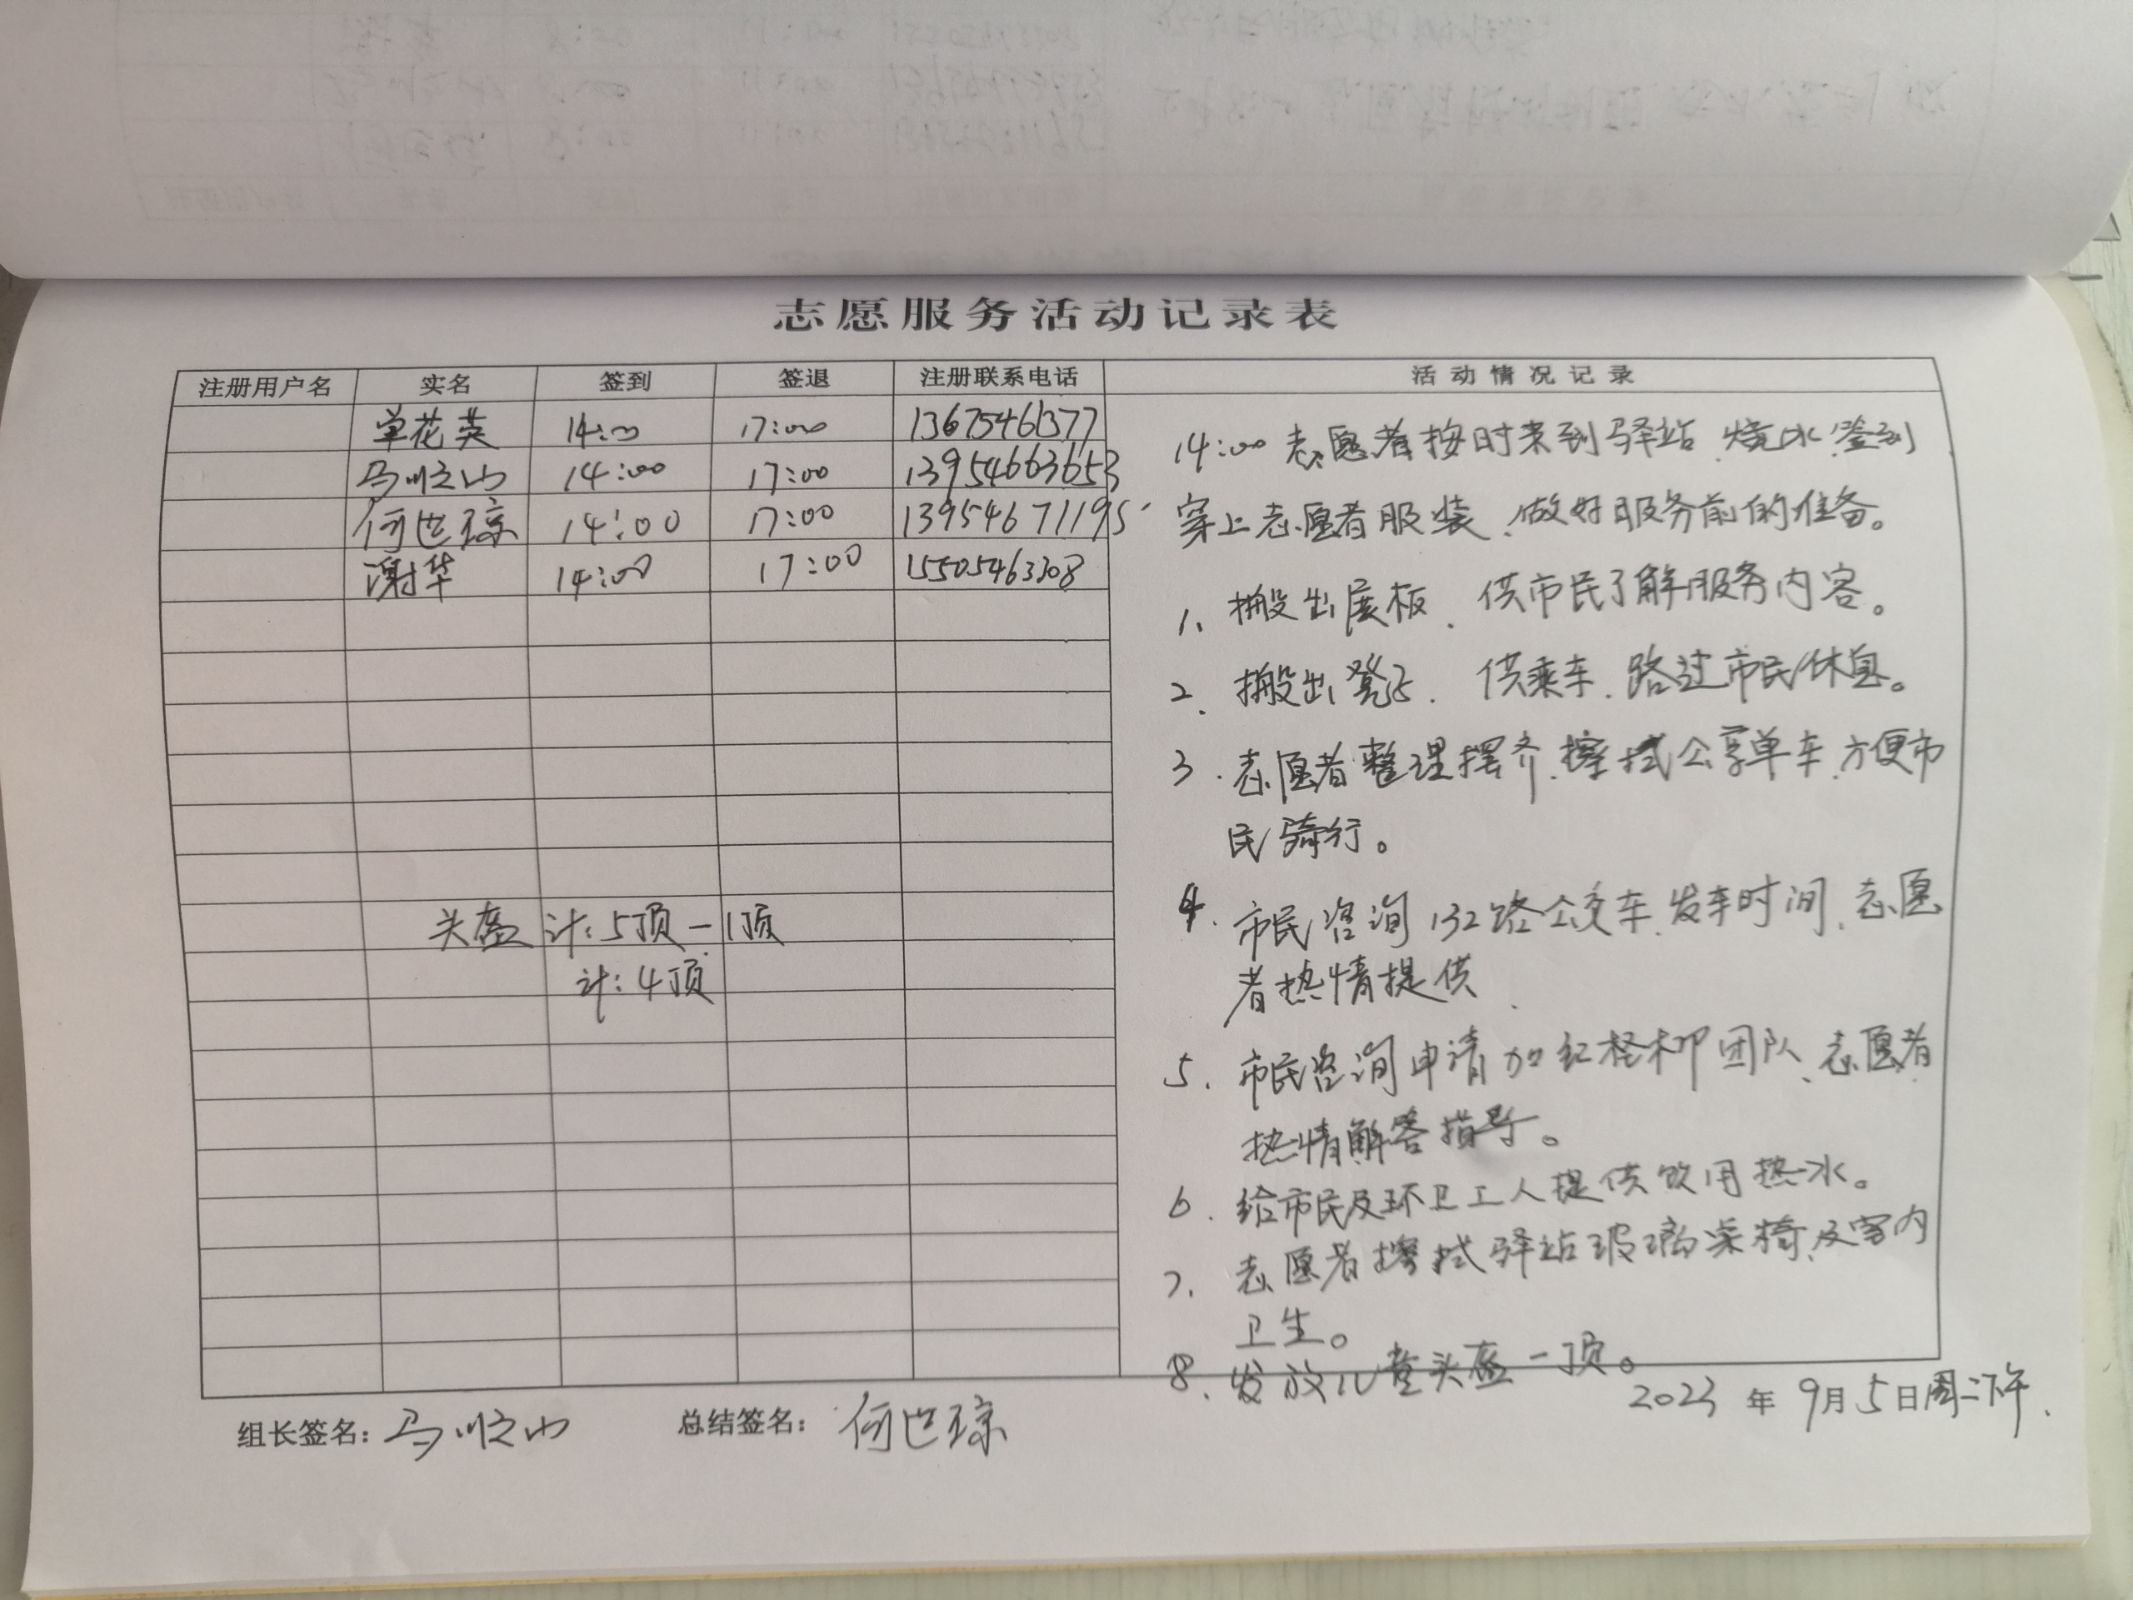 志愿服务活动记录表
注册用户名 实名 签到 签退 注册联系电话 活动情况记录
单花英 14:00 17:00 13675461377
马顺山 14:00 17:00 13954663653
何世琼 14:00 17:00 13954671195
谢华 14:00 17:00 15505463308
头盔 计:5顶-1顶
计:4顶
14:00 志愿者按时来到驿站、烧水、签到
穿上志愿者服装、做好服务前的准备。
1、搬出展板、供市民了解服务内容。
2、搬出凳子、供乘车、路过市民休息。
3、志愿者整理摆齐、擦拭公享单车、方便市
民骑行。
4、市民咨询132路公交车、发车时间、志愿
者热情提供、
5、市民咨询申请加红柽柳团队、志愿者
热情解答指导。
6、给市民及环卫工人提供饮用热水。
7、志愿者擦拭驿站玻璃桌椅、及室内
卫生。
8、发放儿童头盔一顶。
2023 年 9月5日周二下午.
组长签名: 马顺山 总结签名: 何世琼